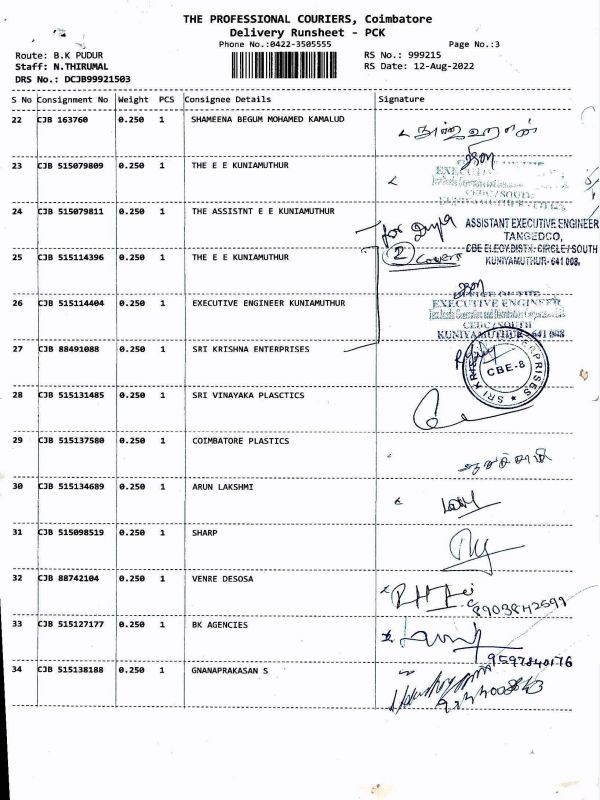 THE PROFESSIONAL COURIERS, Coimbatore
Delivery Runsheet - PCK
Phone No.:0422-3505555 Page No.:3
Route: B.K PUDUR RS No.: 999215
Staff: N.THIRUMAL RS Date: 12-Aug-2022
DRS No.: DCJB99921503
S No Consignment No Weight PCS Consignee Details Signature
22 CJB 163760 0.250 1 SHAMEENA BEGUM MOHAMED KAMALUD
23 CJB 515079809 0.250 1 THE E E KUNIAMUTHUR
24 CJB 515079811 0.250 1 THE ASSISTNT E E KUNIAMUTHUR
for
ASSISTANT EXECUTIVE ENGINEER
TANGEDCO,
CBE ELECY.DISTN. CIRCLE / SOUTH
KUNIYAMUTHUR-641 008.
2 Covers
25 CJB 515114396 0.250 1 THE E E KUNIAMUTHUR
26 CJB 515114404 0.250 1 EXECUTIVE ENGINEER KUNIAMUTHUR
EXECUTIVE ENGINEER
CEDC/SOUTH
KUNIYAMUTHUR-641 008
27 CJB 88491088 0.250 1 SRI KRISHNA ENTERPRISES
CBE-8
28 CJB 515131485 0.250 1 SRI VINAYAKA PLASCTICS
29 CJB 515137580 0.250 1 COIMBATORE PLASTICS
30 CJB 515134689 0.250 1 ARUN LAKSHMI
31 CJB 515098519 0.250 1 SHARP
32 CJB 88742104 0.250 1 VENRE DESOSA
33 CJB 515127177 0.250 1 BK AGENCIES
9597840176
34 CJB 515138188 0.250 1 GNANAPRAKASAN S